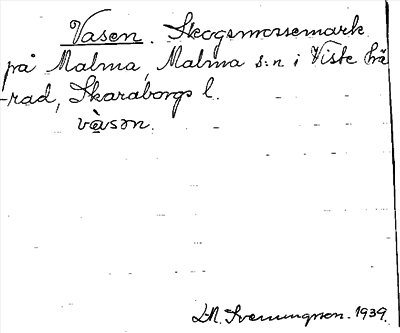 Vasen. Skogsmossemark
på Malma, Malma s:n i Viste hä
-rad, Skaraborgs l.
vàsən.
1939.